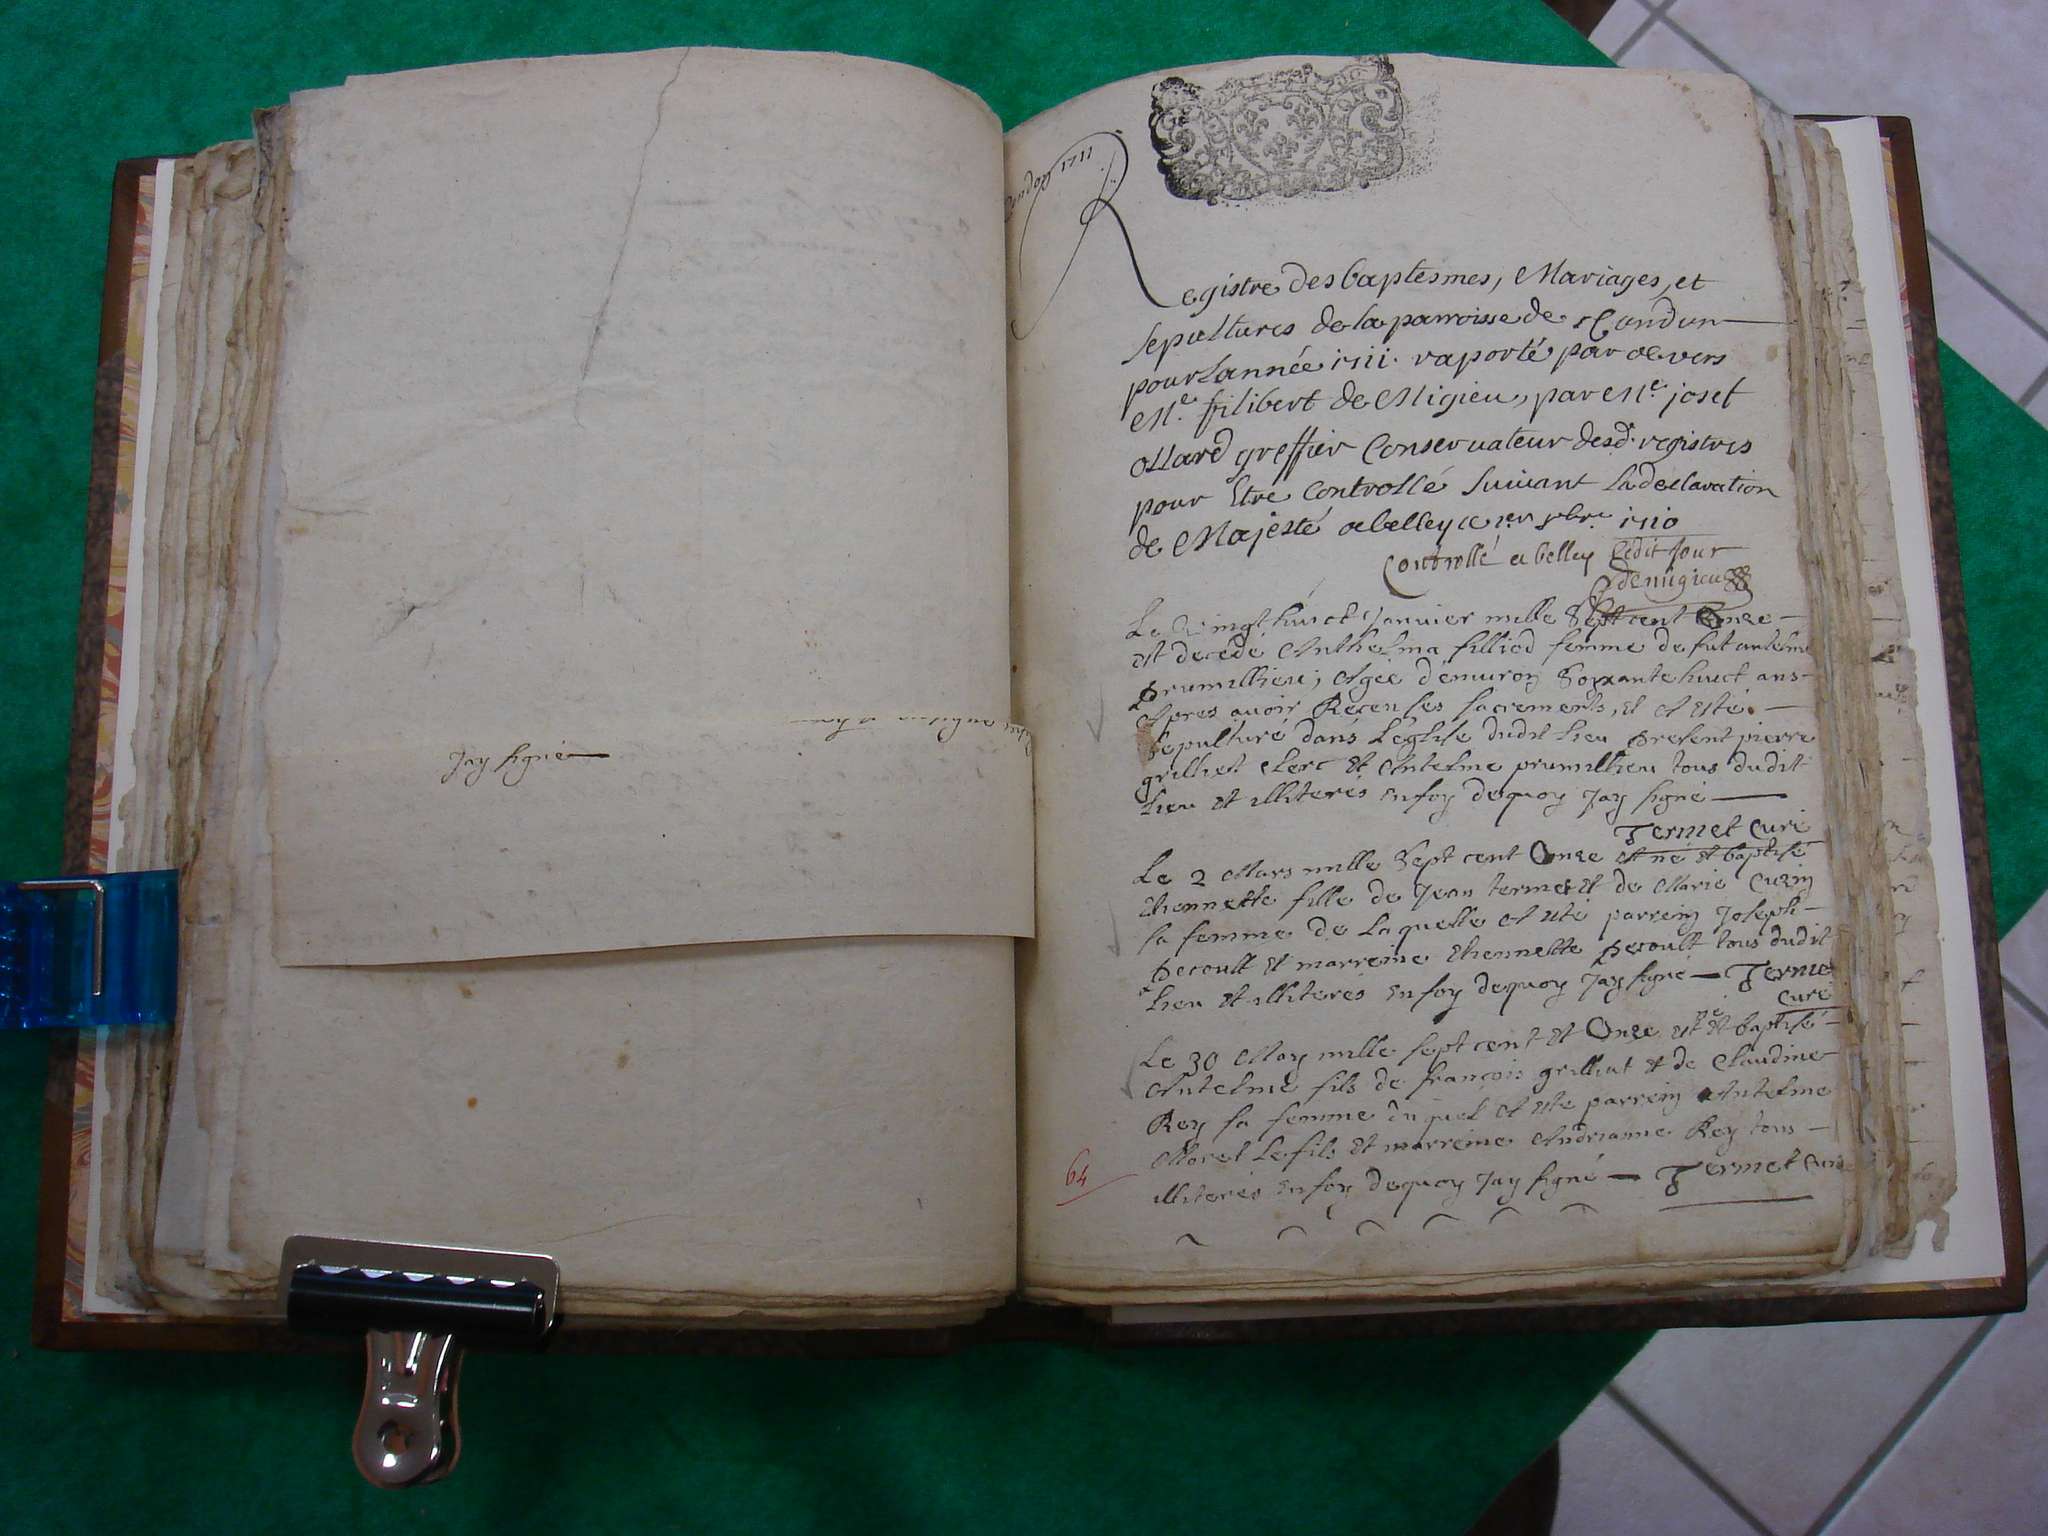 Jay signé
1711
Registre des baptesmes, Mariages, et
sepultures de la parroisse de Condon
pour Lannée 1711. raporté par devers
Me. filibert de Migieu, par Me. josef
ollard greffier Conservateur desd. registres
pour Etre Controllé suivant La declaration
de Majesté a belley ce 1er xbre 1710
Controllé a belley Ledit Jour
demigieu
Le vingt huict Janvier mille Sept cent Onze
est decedé Anthelma filliod femme de fut antelme
prumillieu, Agée d'enuiron Soixante huict ans
Apres auoir Receu les sacrements, et A esté
sepulturé dans L'eglise dudit Lieu present pierre
grilliet clerc et Antelme prumillieu tous dudit
Lieu et illiterés en foy dequoy Jay signé
Termet Curé
Le 2 Mars mille Sept cent Onze est né et baptisé
thiennette fille de Jean termet et de Marie Cuzin
sa femme de Laquelle A esté parrein Joseph
peroult et marreine thiennette peroult tous dudit
Lieu et illiterés en foy dequoy Jay signé Termet
Curé
Le 30 May mille sept cent et Onze est né et baptisé
Antelme fils de françois grilliat et de Claudine
Rey sa femme du quel A este parrein Antelme
Moret Le fils et marreine Andrianne Rey tous
illiterés en foy dequoy Jay signé Termet Curé
64